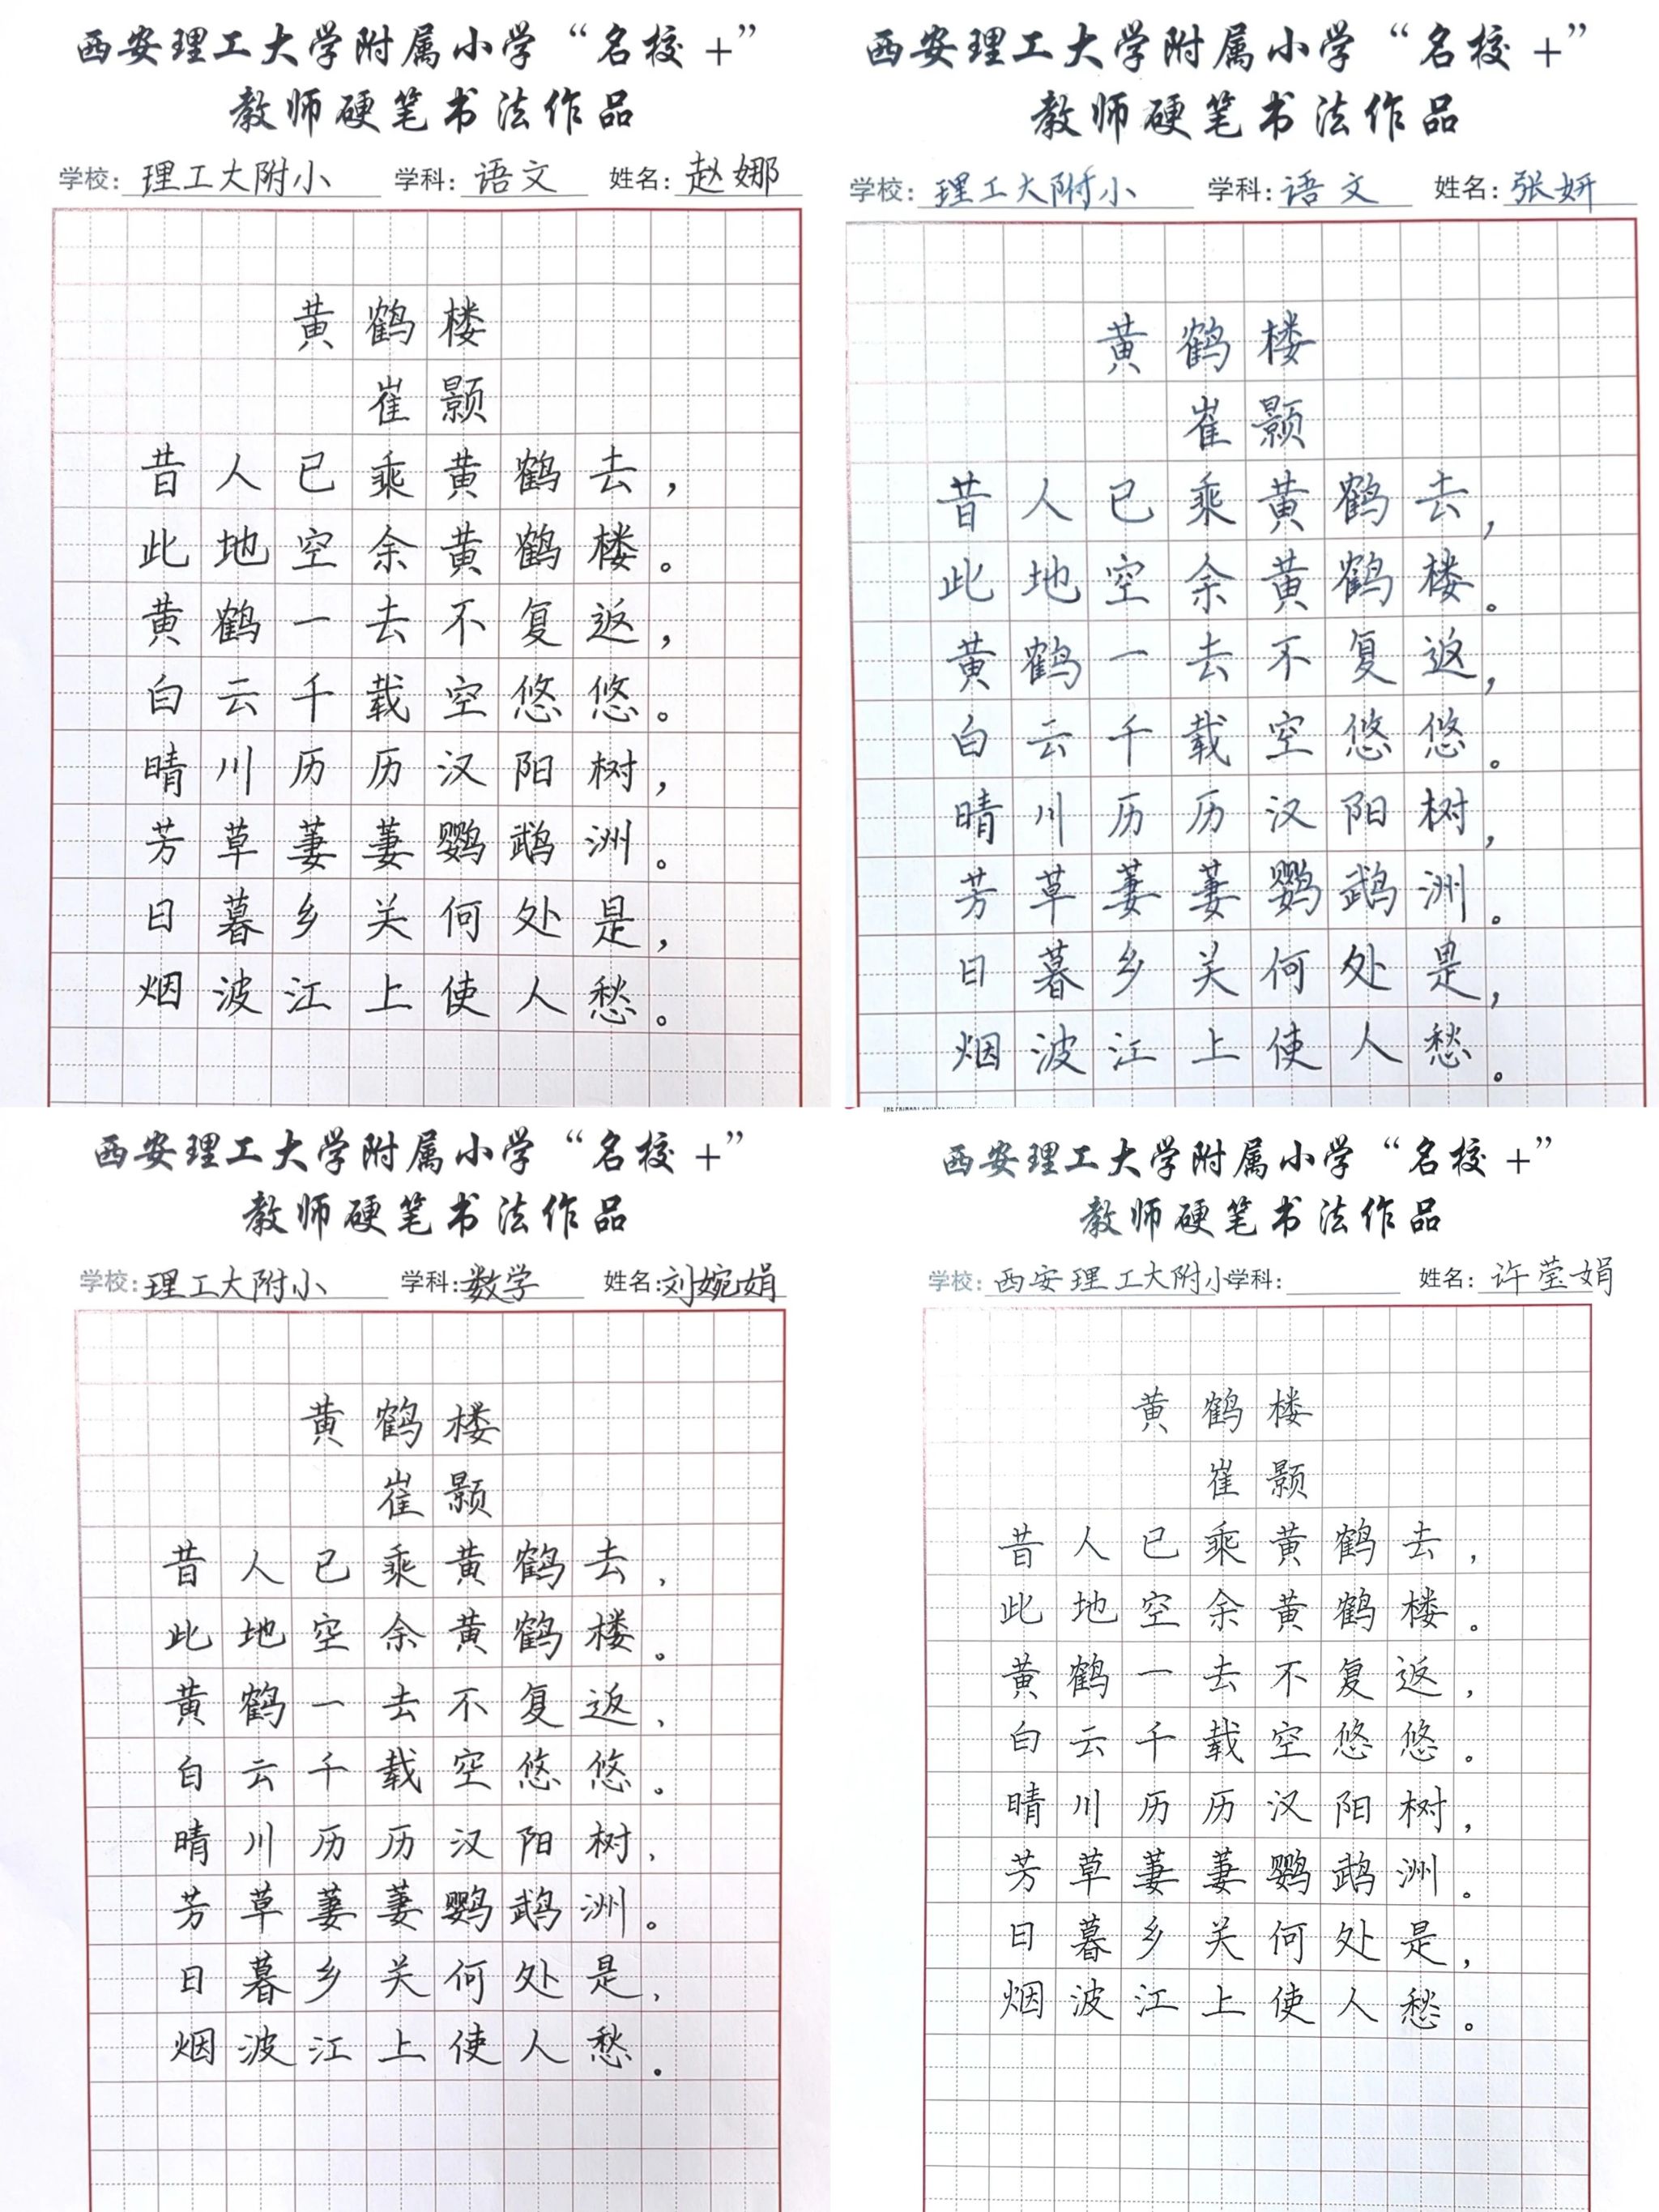 西安理工大学附属小学“名校+”
教师硬笔书法作品
学校：理工大附小 学科：语文 姓名：赵娜
黄鹤楼
崔颢
昔人已乘黄鹤去，
此地空余黄鹤楼。
黄鹤一去不复返，
白云千载空悠悠。
晴川历历汉阳树，
芳草萋萋鹦鹉洲。
日暮乡关何处是，
烟波江上使人愁。
西安理工大学附属小学“名校+”
教师硬笔书法作品
学校：理工大附小 学科：语文 姓名：张妍
黄鹤楼
崔颢
昔人已乘黄鹤去，
此地空余黄鹤楼。
黄鹤一去不复返，
白云千载空悠悠。
晴川历历汉阳树，
芳草萋萋鹦鹉洲。
日暮乡关何处是，
烟波江上使人愁。
西安理工大学附属小学“名校+”
教师硬笔书法作品
学校：理工大附小 学科：数学 姓名：刘婉娟
黄鹤楼
崔颢
昔人已乘黄鹤去，
此地空余黄鹤楼。
黄鹤一去不复返，
白云千载空悠悠。
晴川历历汉阳树，
芳草萋萋鹦鹉洲。
日暮乡关何处是，
烟波江上使人愁。
西安理工大学附属小学“名校+”
教师硬笔书法作品
学校：西安理工大附小 学科： 姓名：许莹娟
黄鹤楼
崔颢
昔人已乘黄鹤去，
此地空余黄鹤楼。
黄鹤一去不复返，
白云千载空悠悠。
晴川历历汉阳树，
芳草萋萋鹦鹉洲。
日暮乡关何处是，
烟波江上使人愁。